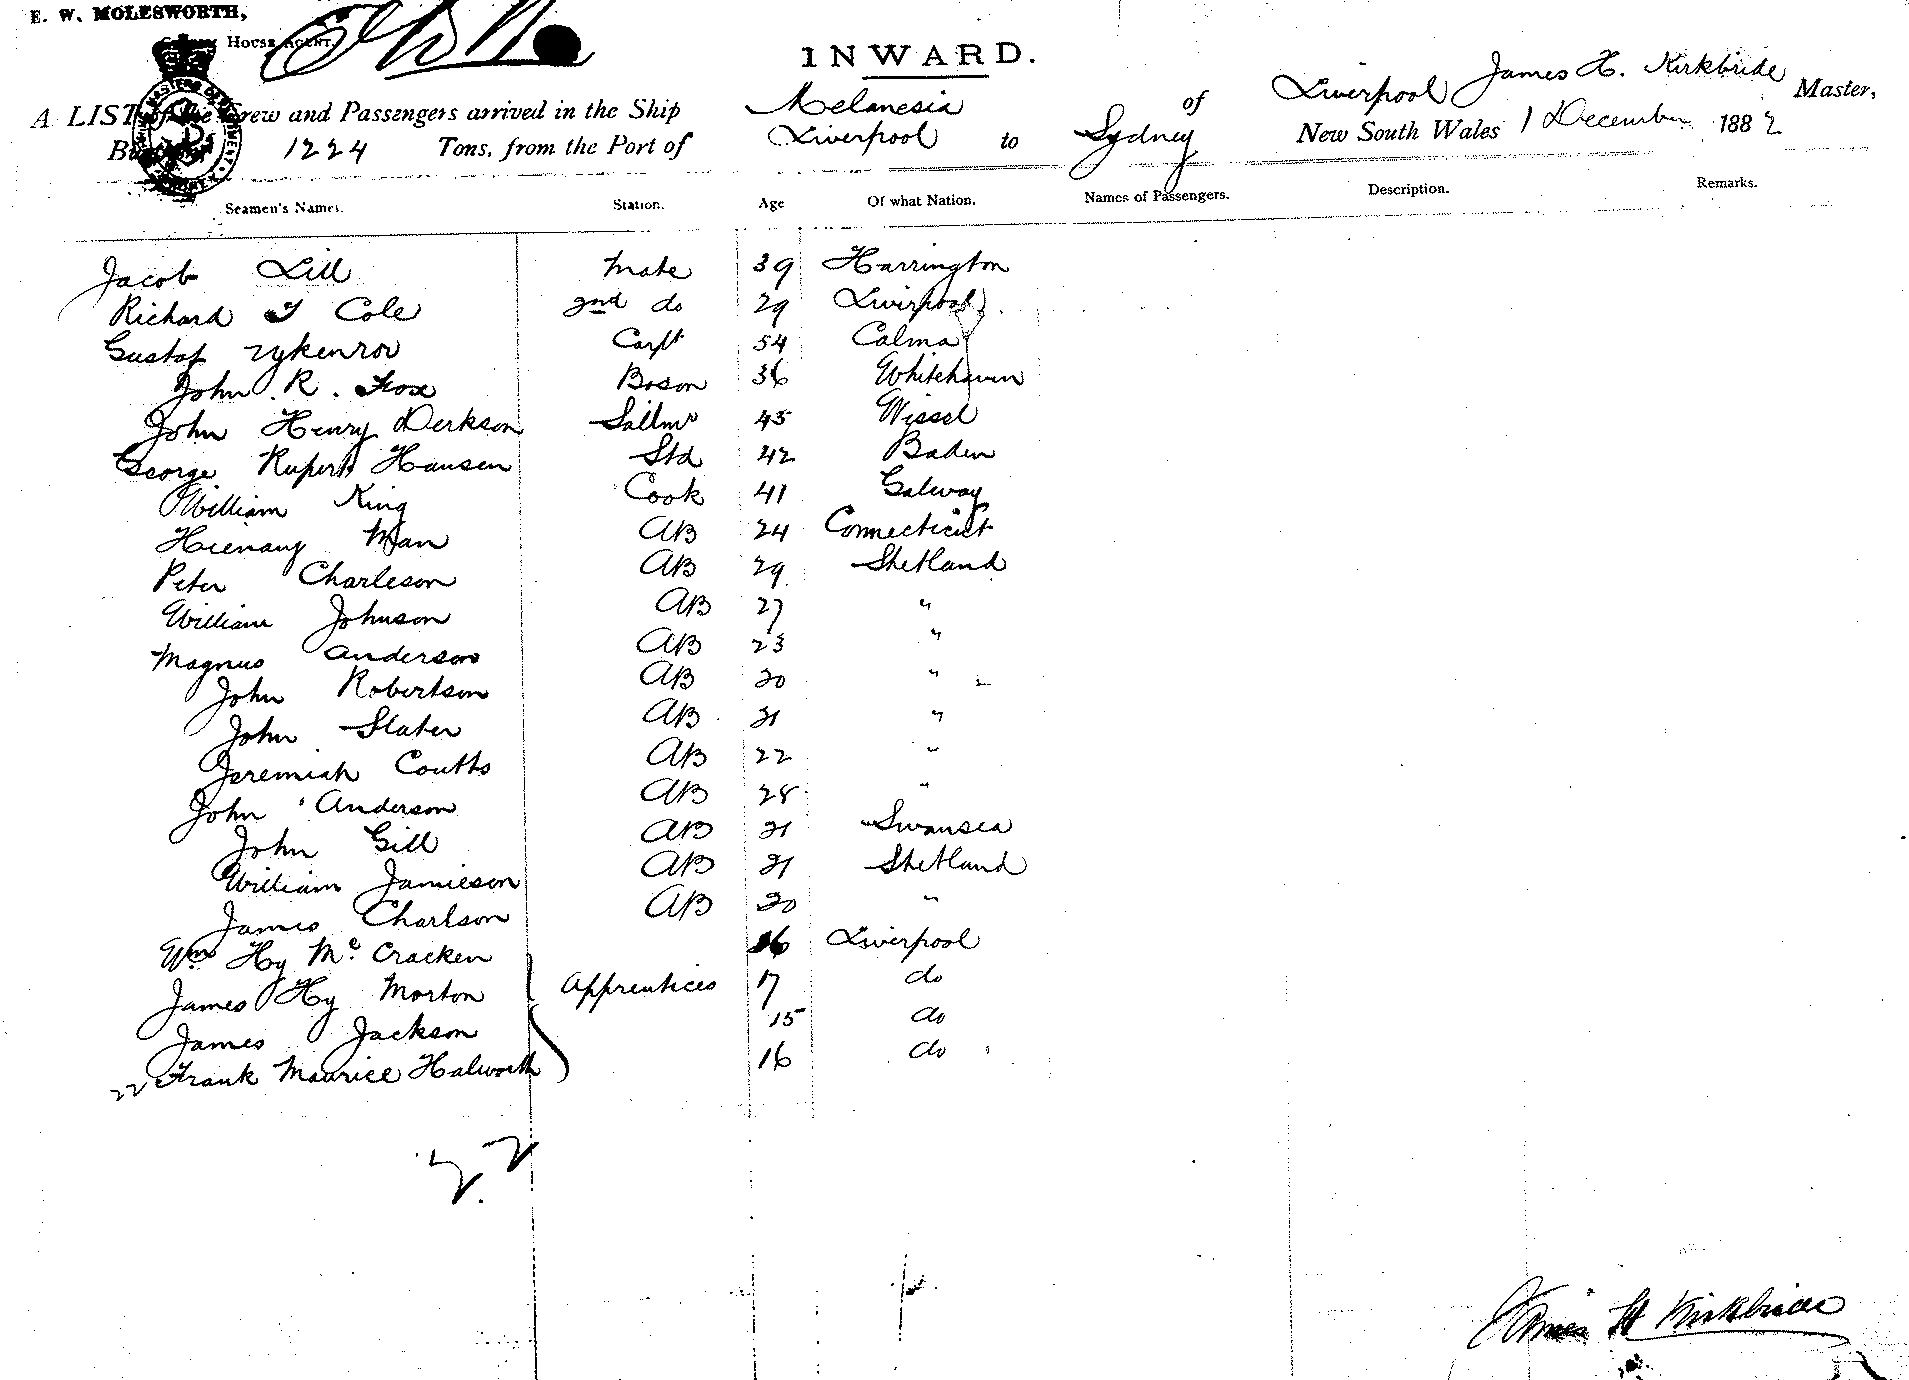 E. W. MOLESWORTH,
House Agent.
INWARD.
A LIST of the Crew and Passengers arrived in the Ship Melanesia of Liverpool James H. Kirkbride Master,
1224 Tons, from the Port of Liverpool to Sydney New South Wales 1 December 1882
Seamen's Names. Station. Age Of what Nation. Names of Passengers. Description. Remarks.
Jacob Lill Mate 39 Harrington
Richard J Cole 2nd do 29 Liverpool
Gustaf Carpt 54 Calma
John R. Fox Boson 36 Whitehaven
John Henry Derkson Sailmr 45 Wissel
George Rupert Hansen Std 42 Baden
William King Cook 41 Galway
Man AB 24 Connecticut
Peter Charleson AB 29 Shetland
William Johnson AB 27 "
Magnus Anderson AB 23 "
John Robertson AB 20 "
John Slater AB 21 "
Jeremiah Coutts AB 22 "
John Anderson AB 28 "
John Gill AB 21 Swansea
William Jamieson AB 21 Shetland
James Charlson AB 20 "
Wm Hy Mc Cracken 16 Liverpool
James Hy Morton Apprentices 17 do
James Jackson 15 do
22 Frank Maurice Halworth 16 do
James H Kirkbride